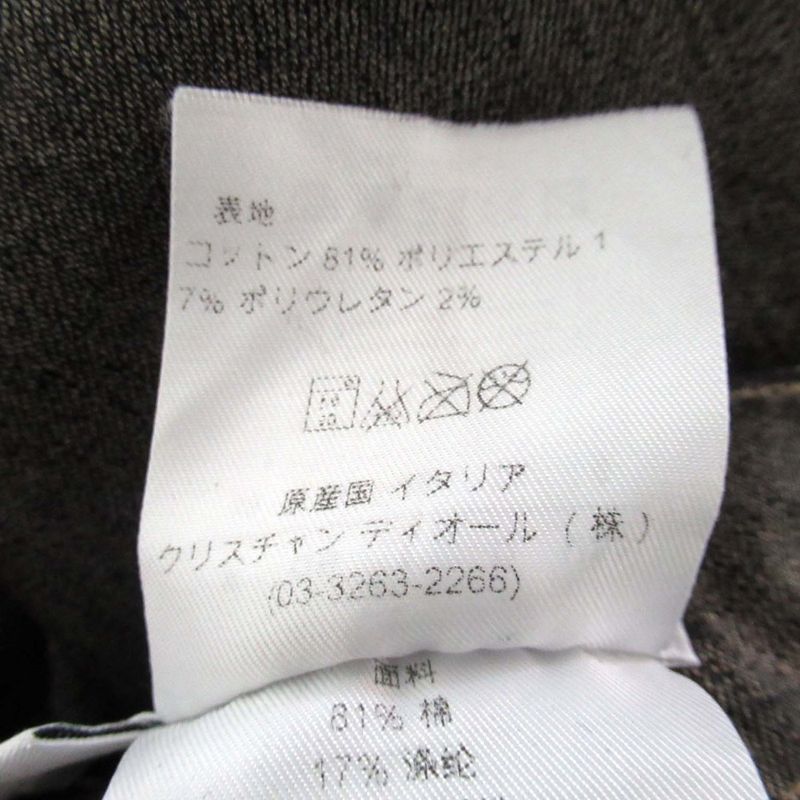 表地
コットン 81% ポリエステル 1
7% ポリウレタン 2%
原産国 イタリア
クリスチャン ディオール (株)
(03-3263-2266)
面料
81% 棉
17% 涤纶